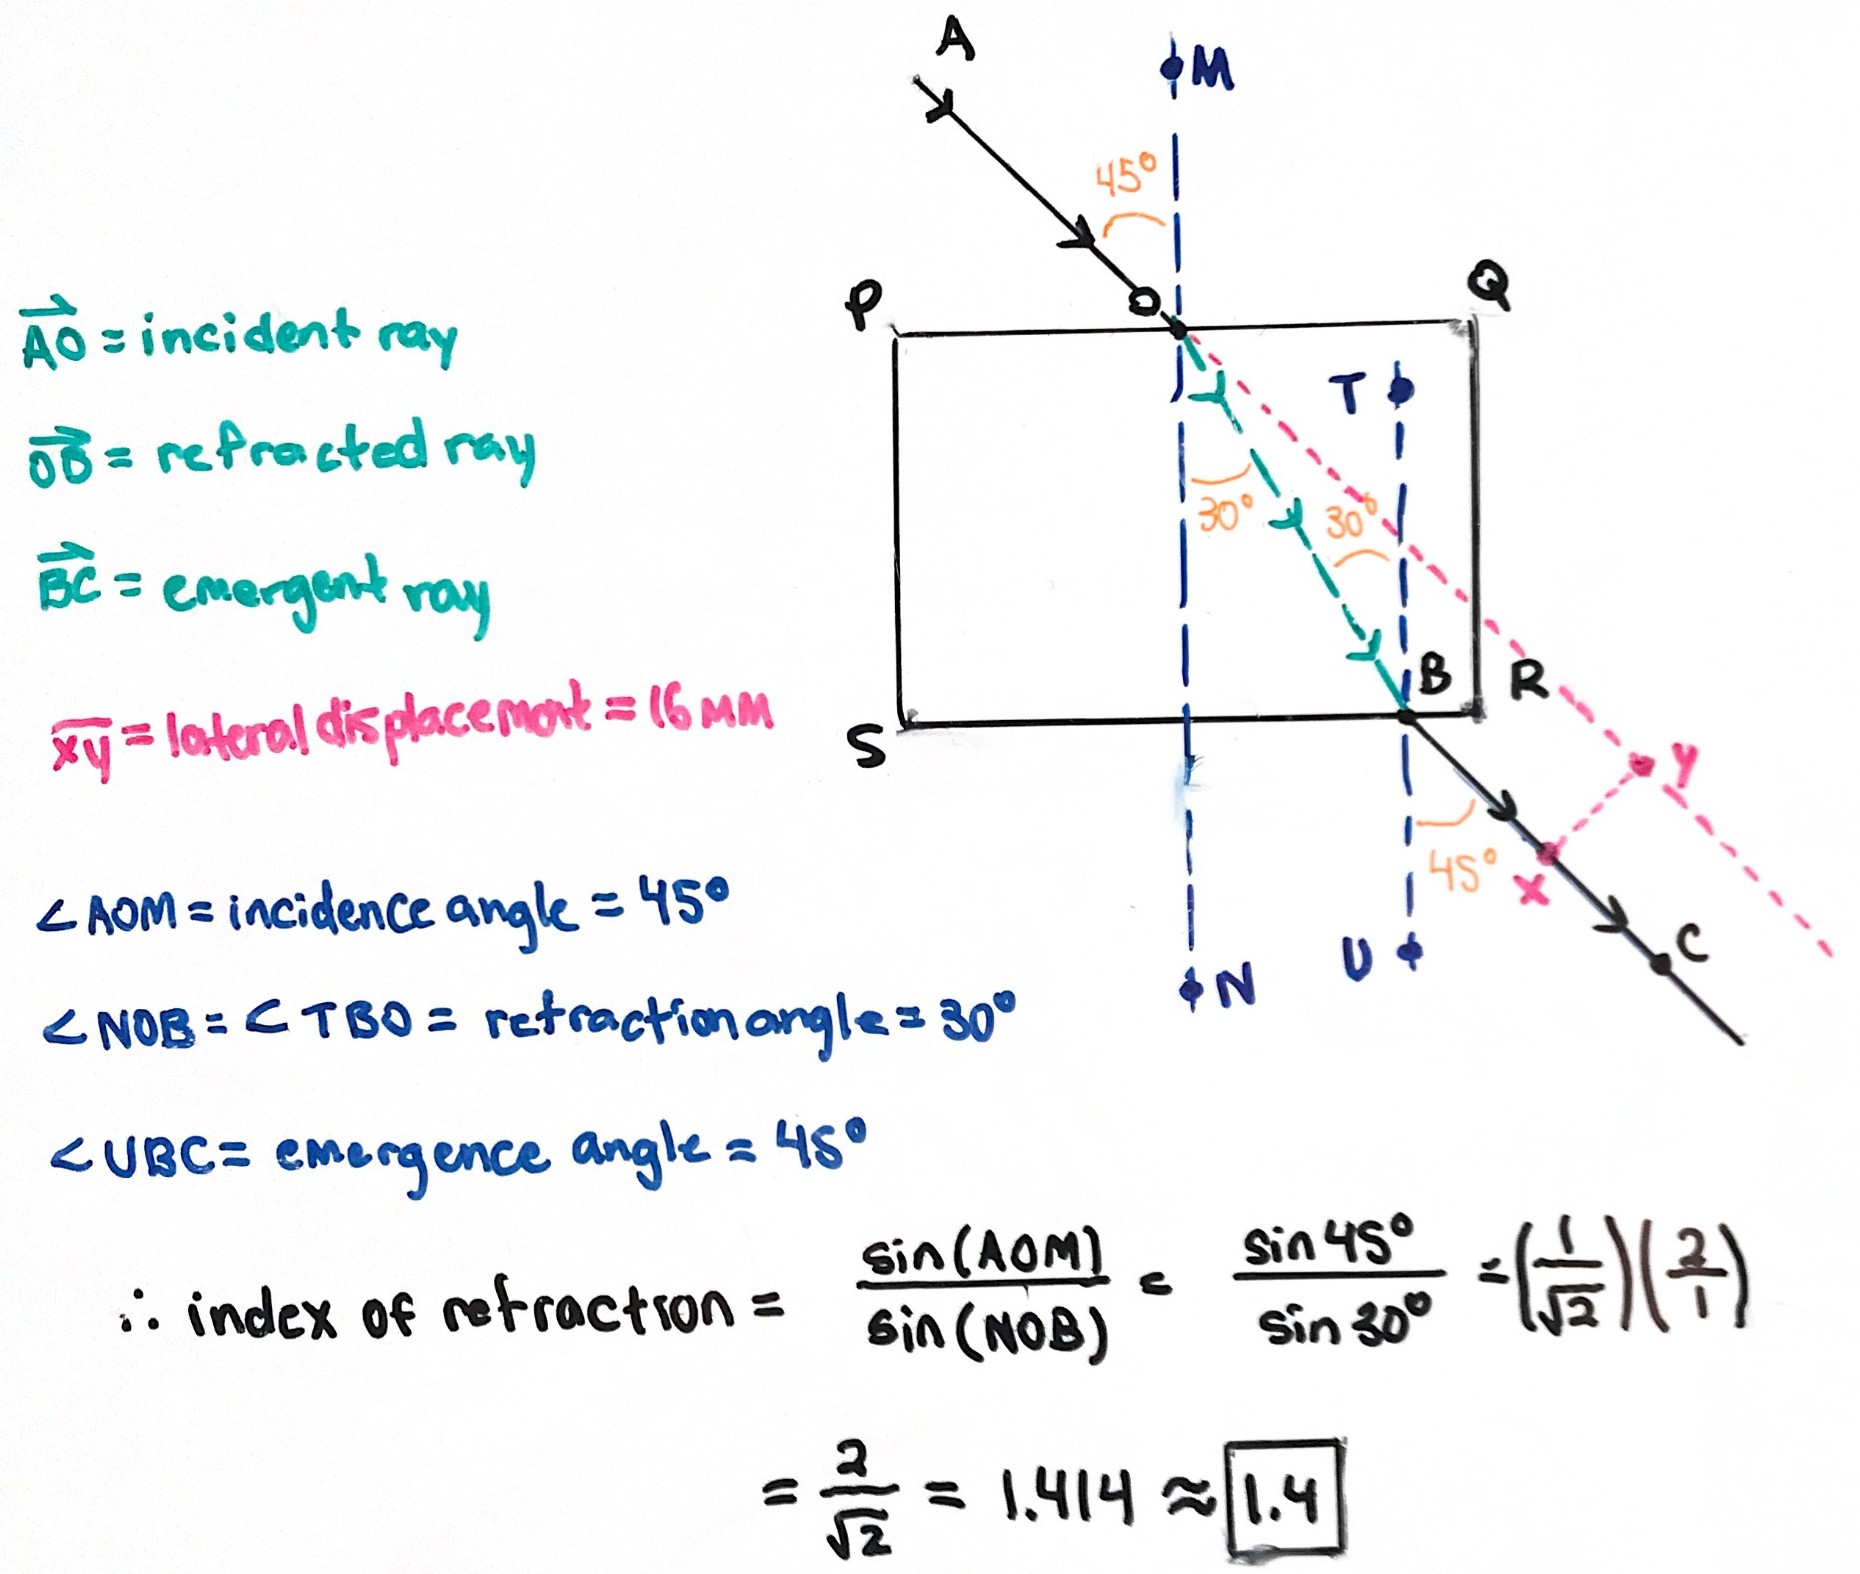 A
M
45°
O
P
Q
T
30°
30°
B
R
S
Y
45°
X
C
U
N
AO = incident ray
OB = refracted ray
BC = emergent ray
xy = lateral displacement = 16 mm
∠AOM = incidence angle = 45°
∠NOB = ∠TBO = refraction angle = 30°
∠UBC = emergence angle = 45°
∴ index of refraction = sin(AOM) / sin(NOB) = sin 45° / sin 30° = (1/√2)(2/1)
= 2/√2 = 1.414 ≈ 1.4